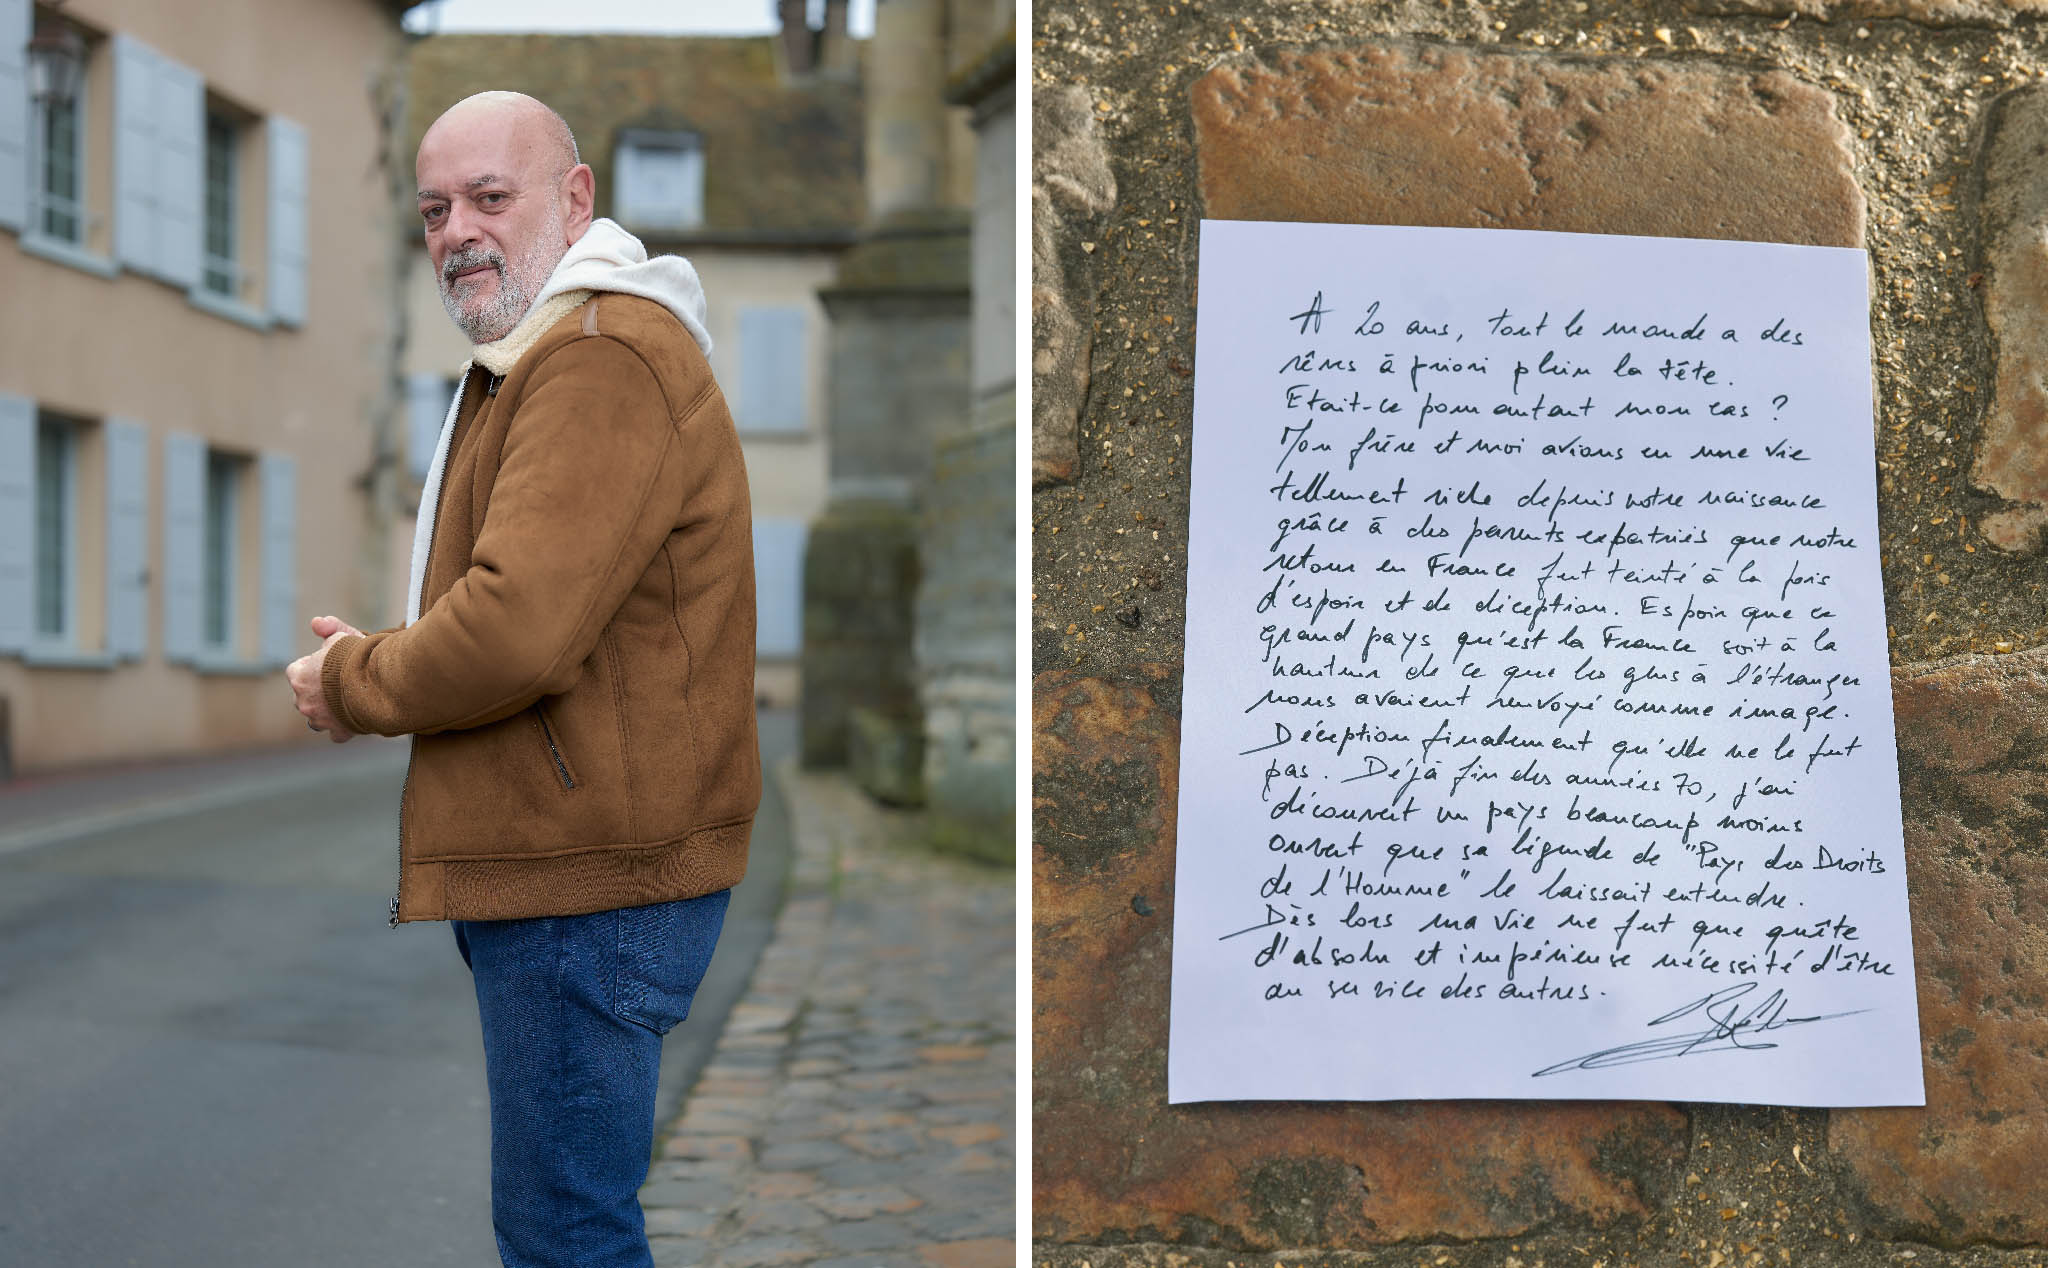 A 20 ans, tout le monde a des
rêves à priori plein la tête.
Etait-ce pour autant mon cas ?
Mon frère et moi avions eu une vie
tellement riche depuis notre naissance
grâce à des parents expatriés que notre
retour en France fut teinté à la fois
d'espoir et de déception. Espoir que ce
grand pays qu'est la France soit à la
hauteur de ce que les gens à l'étranger
nous avaient renvoyé comme image.
Déception finalement qu'elle ne le fut
pas. Déjà fin des années 70, j'ai
découvert un pays beaucoup moins
ouvert que sa légende de "Pays des Droits
de l'Homme" le laissait entendre.
Dès lors ma vie ne fut que quête
d'absolu et impérieuse nécessité d'être
au service des autres.